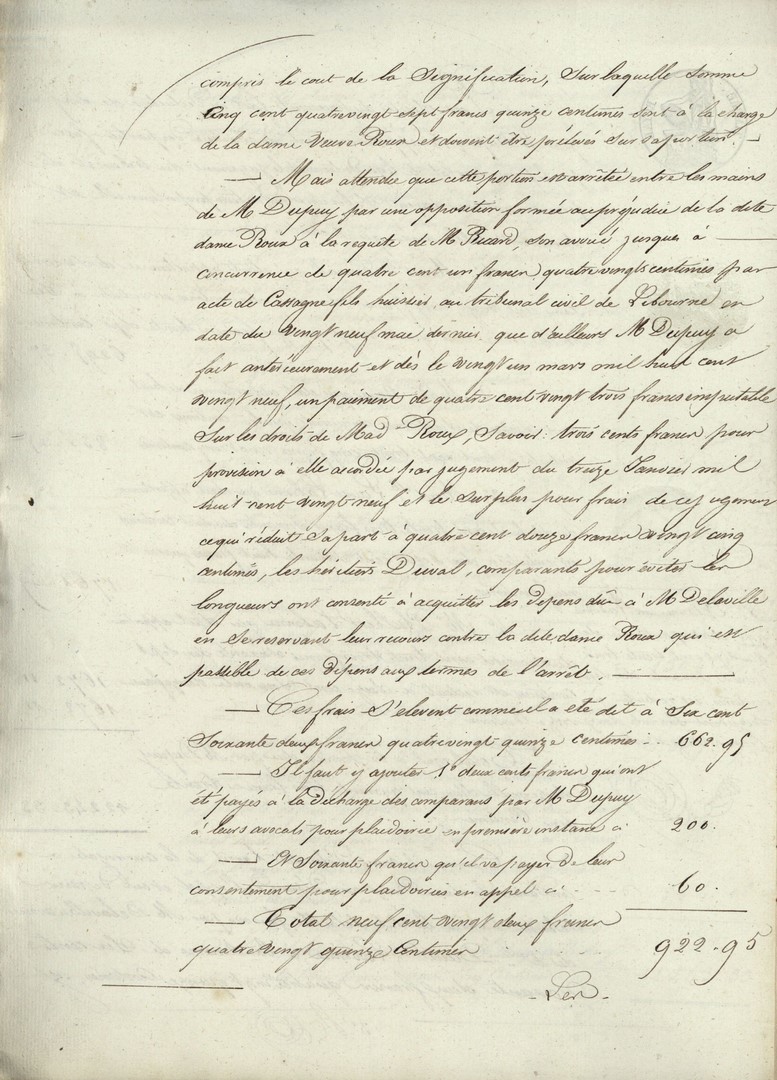 compris le cout de la Signification, Sur laquelle Somme
Cinq cent quatre vingt sept francs quinze centimes sont à la charge
de la dame Veuve Roux et doivent être prélevés sur sa portion. —
— Mais attendu que cette portion est arrêtée entre les mains
de M Dupuy par une opposition formée au préjudice de la dite
dame Roux à la requête de Me Ricard, son avoué jusques à —
concurrence de quatre cent un francs quatre vingts centimes par
acte de Cassagne fils huissier au tribunal civil de Libourne en
date du vingt neuf mai dernier, que d'ailleurs M Dupuy a
fait antérieurement et dès le vingt un mars mil huit cent
vingt neuf, un paiement de quatre cent vingt trois francs imputable
Sur les droits de Made Roux, Savoir: trois cents francs pour
provision à elle acordée par jugement du treize Janvier mil
huit cent vingt neuf et le surplus pour frais de ce jugement
ce qui réduit sa part à quatre cent douze francs vingt cinq
centimes, les héritiers Duval, comparants pour éviter les
longueurs ont consenti à acquitter les dépens dûs à Me Delaville
en se reservant leur recours contre la dite dame Roux qui est
passible de ces dépens aux termes de l'arrêt. —
— Ces frais S'elevent comme il a été dit à Six cent
Soixante deux francs quatre vingt quinze centimes.. 662.95
— Il faut y ajouter 1° deux cents francs qui ont
été payés à la décharge des comparans par M Dupuy
à leurs avocats pour plaidoirie en première instance ci 200.
— Et Soixante francs qu'il va payer de leur
consentement pour plaidoiries en appel ci - - - 60.
— Total neuf cent vingt deux francs
quatre vingt quinze Centimes . . . 922.95
- Les -